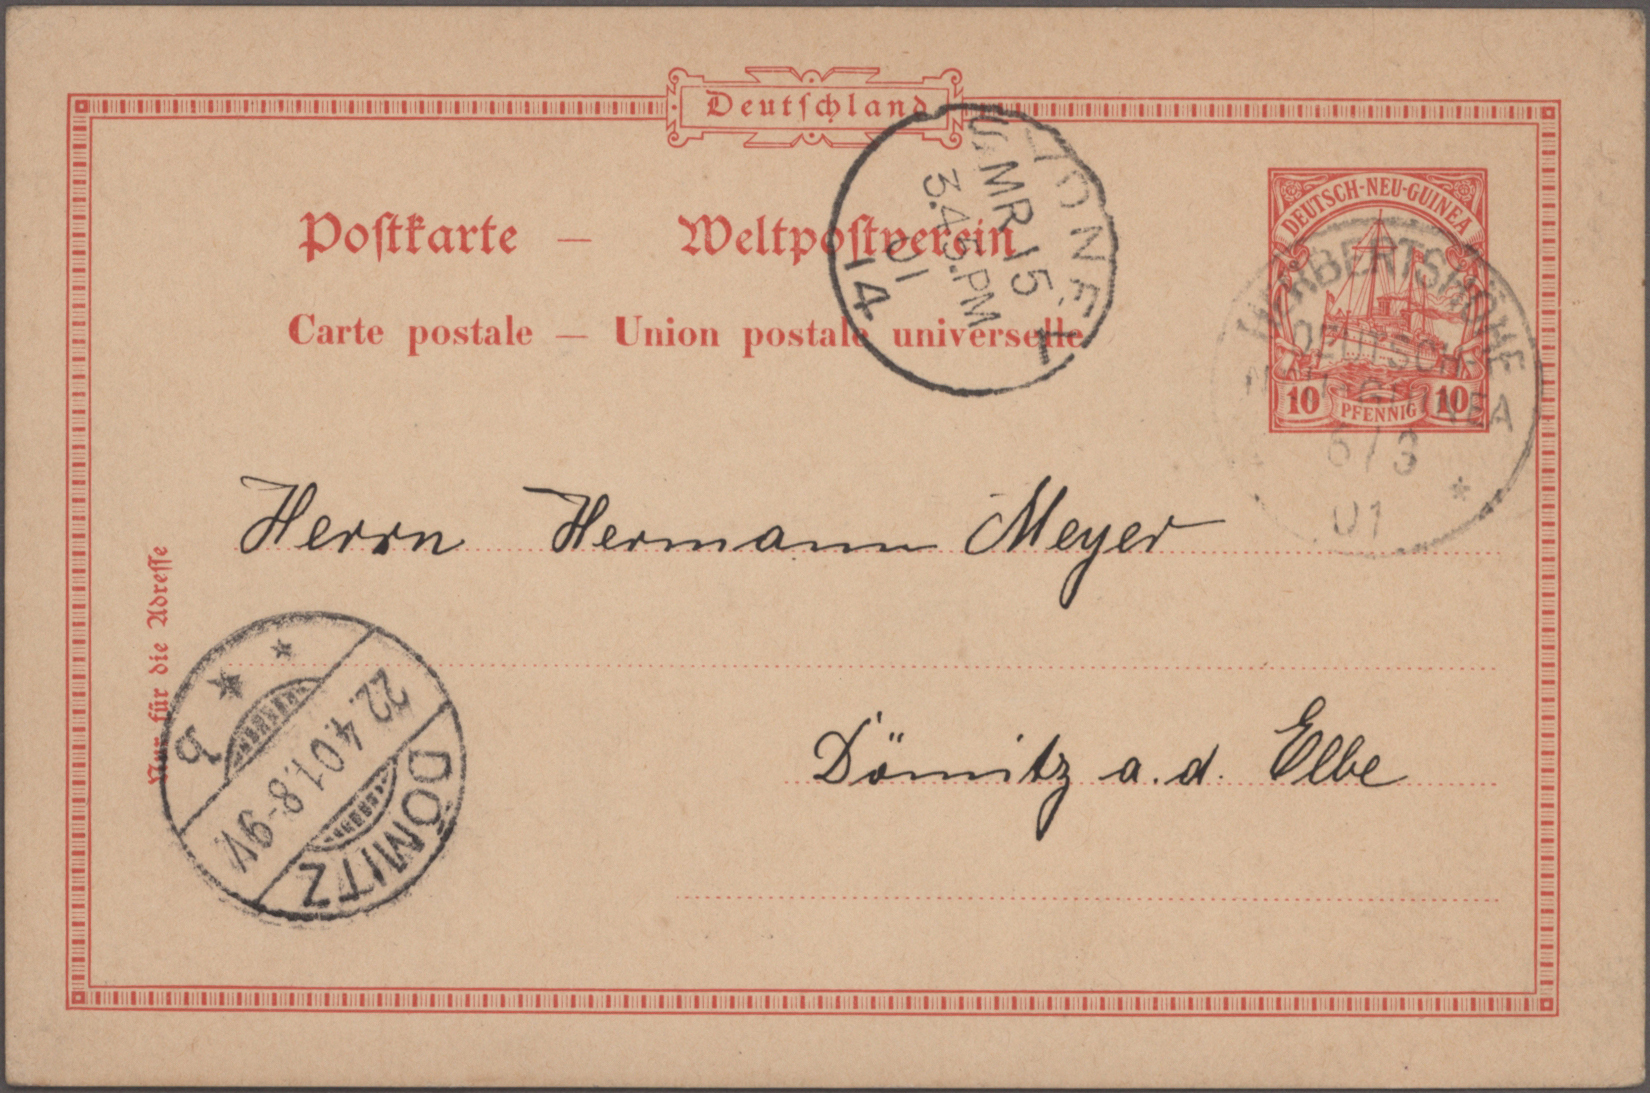 Deutschland
Postkarte — Weltpostverein
Carte postale — Union postale universelle
DEUTSCH-NEU-GUINEA
10 PFENNIG 10
SYDNEY
MR 15
3.45.PM
01
14
HERBERTSHÖHE
DEUTSCH-
NEU-GUINEA
6/3
01
*
Herrn Hermann Meyer
Dömitz a. d. Elbe
Nur für die Adresse
DÖMITZ
22.4.01.8-9V.
* b *